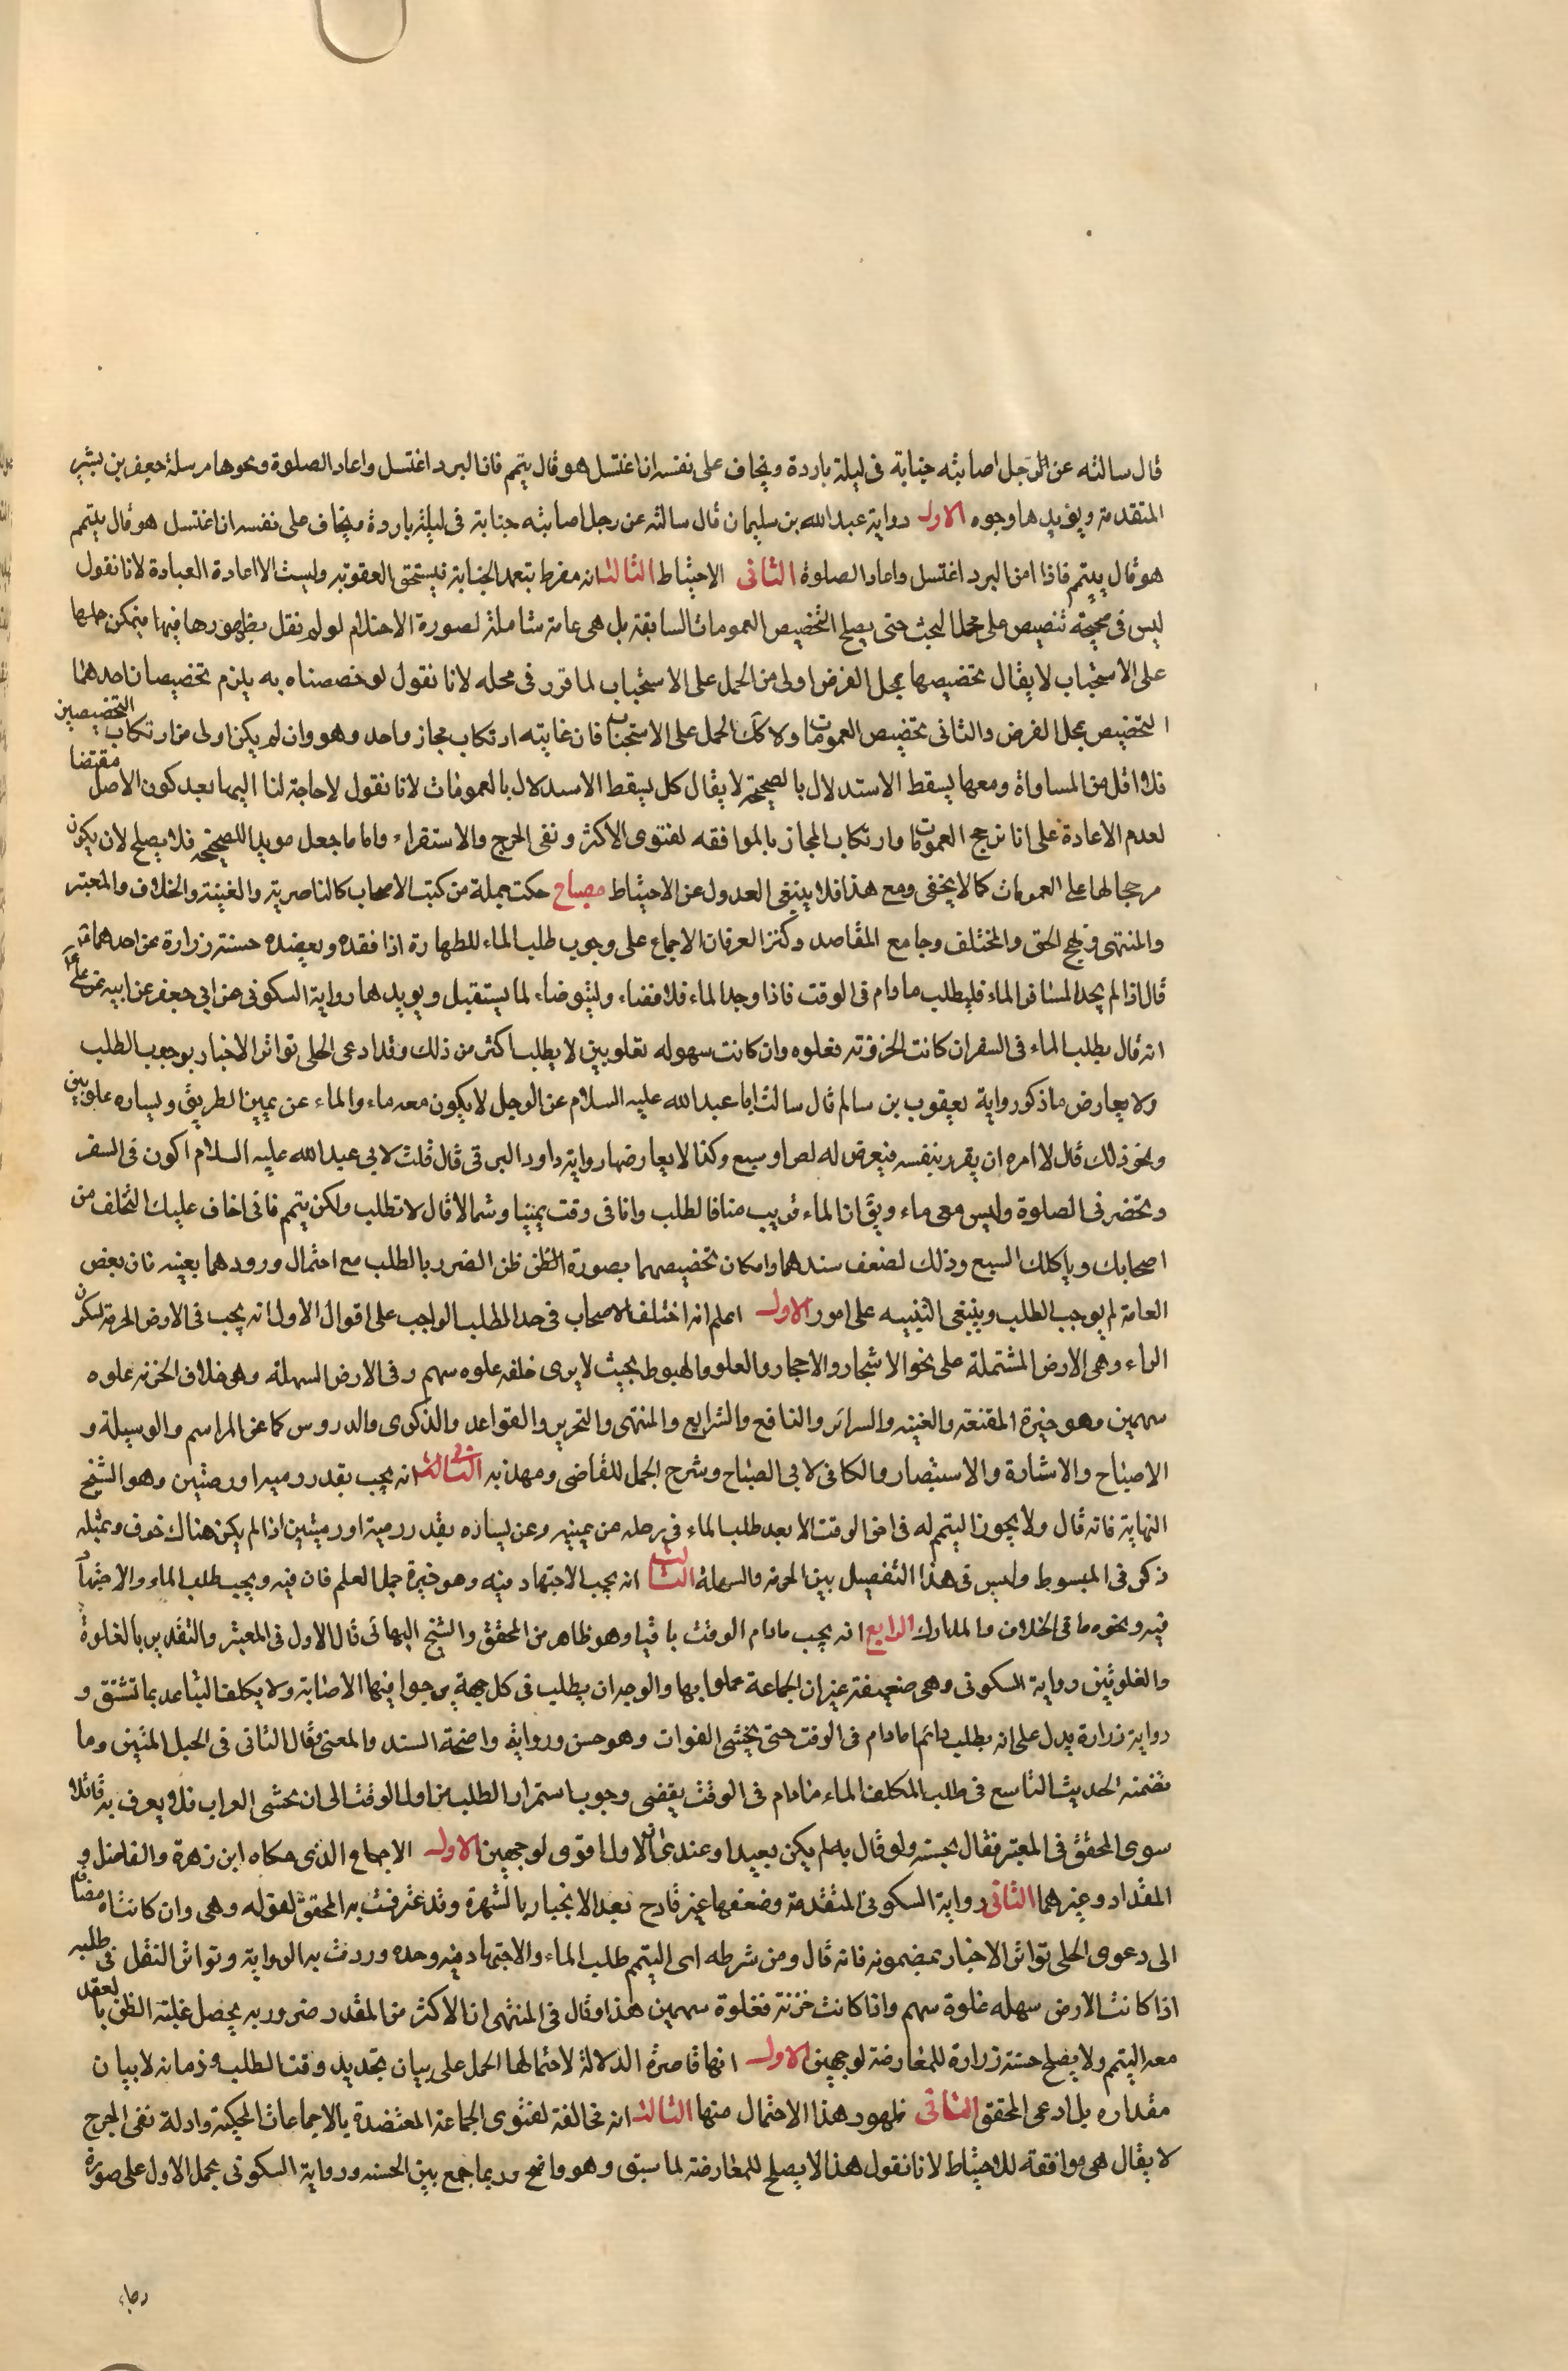 قال سالته عن الرجل اصابته جنابة فى ليلة باردة ويخاف على نفسه ان اغتسل هو قال يتيمم فاذا البرد اغتسل واعاد الصلوة ونحوها مرسلة جعفر بن بشير
المتقدمة ويؤيدها وجوه الاول رواية عبد الله بن سليمان قال سالته عن رجل اصابته جنابة فى ليلة باردة فيخاف على نفسه ان اغتسل هو قال يتيمم
هو قال يتيمم فاذا امن البرد اغتسل واعاد الصلوة الثانى الاحتياط الثالث انه مفرط بتعمد الجنابة فيستحق العقوبة وليست الا اعادة العبادة لانا نقول
ليس فى صحيحة تنصيص على محل البحث حتى يصلح التخصيص العمومات السابقة بل هى عامة شاملة لصورة الاحتلام لو لم نقل بظهورها فيها فيمكن حملها
على الاستحباب لا يقال تخصيصها بمحل الفرض اولى من الحمل على الاستحباب لما قرر فى محله لانا نقول لو خصصناه به يلزم تخصيصان احدهما
التخصيص بمحل الفرض والثانى تخصيص العمومات ولا كك الحمل على الاستحباب فان غايته ارتكاب مجاز واحد وهو وان لم يكن اولى من ارتكاب التخصيصين
فلا اقل من المساواة ومعها يسقط الاستدلال بالصحيحة لا يقال كل يسقط الاستدلال بالعمومات لانا نقول لا حاجة لنا اليها بعد كون الاصل مقتضا
لعدم الاعادة على انا نرجح العمومات وارتكاب المجاز بالموافقه لفتوى الاكثر ونفى الحرج والاستقراء واما ما جعل مويدا للصحيحه فلا يصلح لان يكون
مرجحا لها على العمومات كما لا يخفى ومع هذا فلا ينبغى العدول عن الاحتياط مصباح حكت جملة من كتب الاصحاب كالناصرية والغنية والخلاف والمعتبر
والمنتهى ونهج الحق والمختلف وجامع المقاصد وكنز العرفان الاجماع على وجوب طلب الماء للطهارة اذا فقده ويعضده حسنة زرارة عن احدهما
قال اذا لم يجد المسافر الماء فليطلب ما دام فى الوقت فاذا وجد الماء فلا قضاء وليتوضاء لما يستقبل ويويدها رواية السكونى عن ابى جعفر عن ابيه عن على
انه قال يطلب الماء فى السفر ان كانت الحزونة فغلوه وان كانت سهوله فغلوبين لا يطلب اكثر من ذلك وقد ادعى الحلى تواتر الاخبار بوجوب الطلب
ولا يعارض ما ذكر رواية يعقوب بن سالم قال سالت ابا عبد الله عليه السلام عن الرجل لا يكون معه ماء والماء عن يمين الطريق ويساره غلوتين
ونحو ذلك قال لا امره ان يغرر بنفسه فيعرض له لص او سبع وكذا لا يعارضها رواية داود البرقى قال قلت لابى عبد الله عليه السلام اكون فى السفر
وتحضرنى الصلوة وليس معى ماء ويق ان الماء قريب منا فالطلب وانا فى وقت يمينا وشمالا قال لا تطلب ولكن يتيمم فانى اخاف عليك التخلف من
اصحابك وياكلك السبع وذلك لضعف سندهما وامكان تخصيصهما بصورة ظن الضرر بالطلب مع احتمال ورودهما بعينه فان بعض
العامة لم يوجب الطلب وينبغى التنبيه على امور الاول اعلم انه اختلف الاصحاب فى حد الطلب الواجب على اقوال الاول انه يجب فى الارض الحزنة بسكون
الزاء وهى الارض المشتملة على نحو الاشجار والاحجار والعلو والهبوط بحيث لا يرى خلفه غلوه سهم وفى الارض السهلة وهى خلاف الحزنه غلوه
سهمين وهو خيرة المقنعه والغنيه والسرائر والنافع والشرايع والمنتهى والتحرير والقواعد والذكرى والدروس كما عن المراسم والوسيلة و
الاصباح والاشارة والاستبصار والكافى لابى الصلاح وشرح الجمل للقاضى ومهذبه الثانى انه يجب بقدر رميه او رميتين وهو الشيخ
النهاية فانه قال ولا يجوز التيمم له فى اخر الوقت الا بعد طلب الماء فى رحله عن يمينه وعن يساره بقدر رمية او رميتين اذا لم يكن هناك خوف وبمثله
ذكر فى المبسوط وليس فى هذا التفصيل بين الحزنه والسهلة الثالث انه يجب الاجتهاد فيه وهو خيرة جمل العلم فان فيه ويجب طلب الماء والاجتهاد
فيه ونحوه ما فى الخلاف والمدارك الرابع انه يجب مادام الوقت باقيا وهو ظاهر من المحقق والشيخ البهائى قال الاول فى المعتبر والتقدير بالغلوة
والغلوتين رواية السكونى وهى ضعيفة غير ان الجماعة عملوا بها والوجه ان يطلب فى كل جهة يرجوا فيها الاصابة ولا يكلف التباعد بما تشق و
رواية زرارة يدل على انه يطلب دائما مادام فى الوقت حتى يخشى الفوات وهو حسن ورواية واضحة السند والمعنى وقال الثانى فى الحبل المتين وما
تضمنه الحديث التاسع فى طلب المكلف الماء مادام فى الوقت يقتضى وجوب استمرار الطلب من اول الوقت الى ان يخشى الفوات فلا يعرف به قائلا
سوى المحقق فى المعتبر فقال بحسنه ولو قال به لم يكن بعيدا وعندى ان الاول اقوى لوجهين الاول الاجماع الذى حكاه ابن زهرة والفاضل و
المقداد وغيرهما الثانى رواية السكونى المتقدمة وضعفها غير قادح بعد الانجبار بالشهرة وقد عترفت به المحقق لقوله وهى وان كانت اه مضافا
الى دعوى الحلى تواتر الاخبار بمضمونه فانه قال ومن شرطه اى التيمم طلب الماء والاجتهاد فيه وحده وردت به الرواية وتواتر النقل فى طلبه
اذا كانت الارض سهله غلوة سهم واذا كانت حزنة فغلوة سهمين هذا وقال فى المنتهى ان الاكثر من المقدر ضرور به يحصل غلبة الظن بالعقد
معه التيمم ولا يصلح حسنة زرارة للمعارضة لوجهين الاول انها قاصرة الدلالة لاحتمالها الحمل على بيان تحديد وقت الطلب وزمانه لا بيان
مقداره بل ادعى المحقق الثانى ظهور هذا الاحتمال منها الثالث انه مخالفة لفتوى الجماعة المعتضدة بالاجماعات المحكية وادلة نفى الحرج
لا يقال هى موافقة للاحتياط لانا نقول هذا لا يصلح للمعارضة لما سبق وهو واضح وربما جمع بين الحسنه ورواية السكونى بحمل الاول على صورة
رجاء